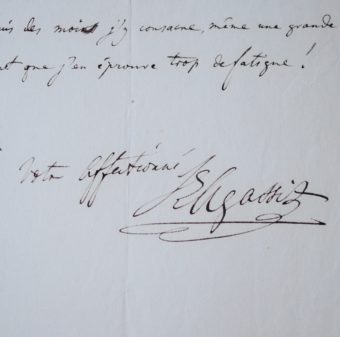 uis des mois j'y consacre, même une grande
nt que j'en éprouve trop de fatigue !
Votre affectionné
Ls Agassiz